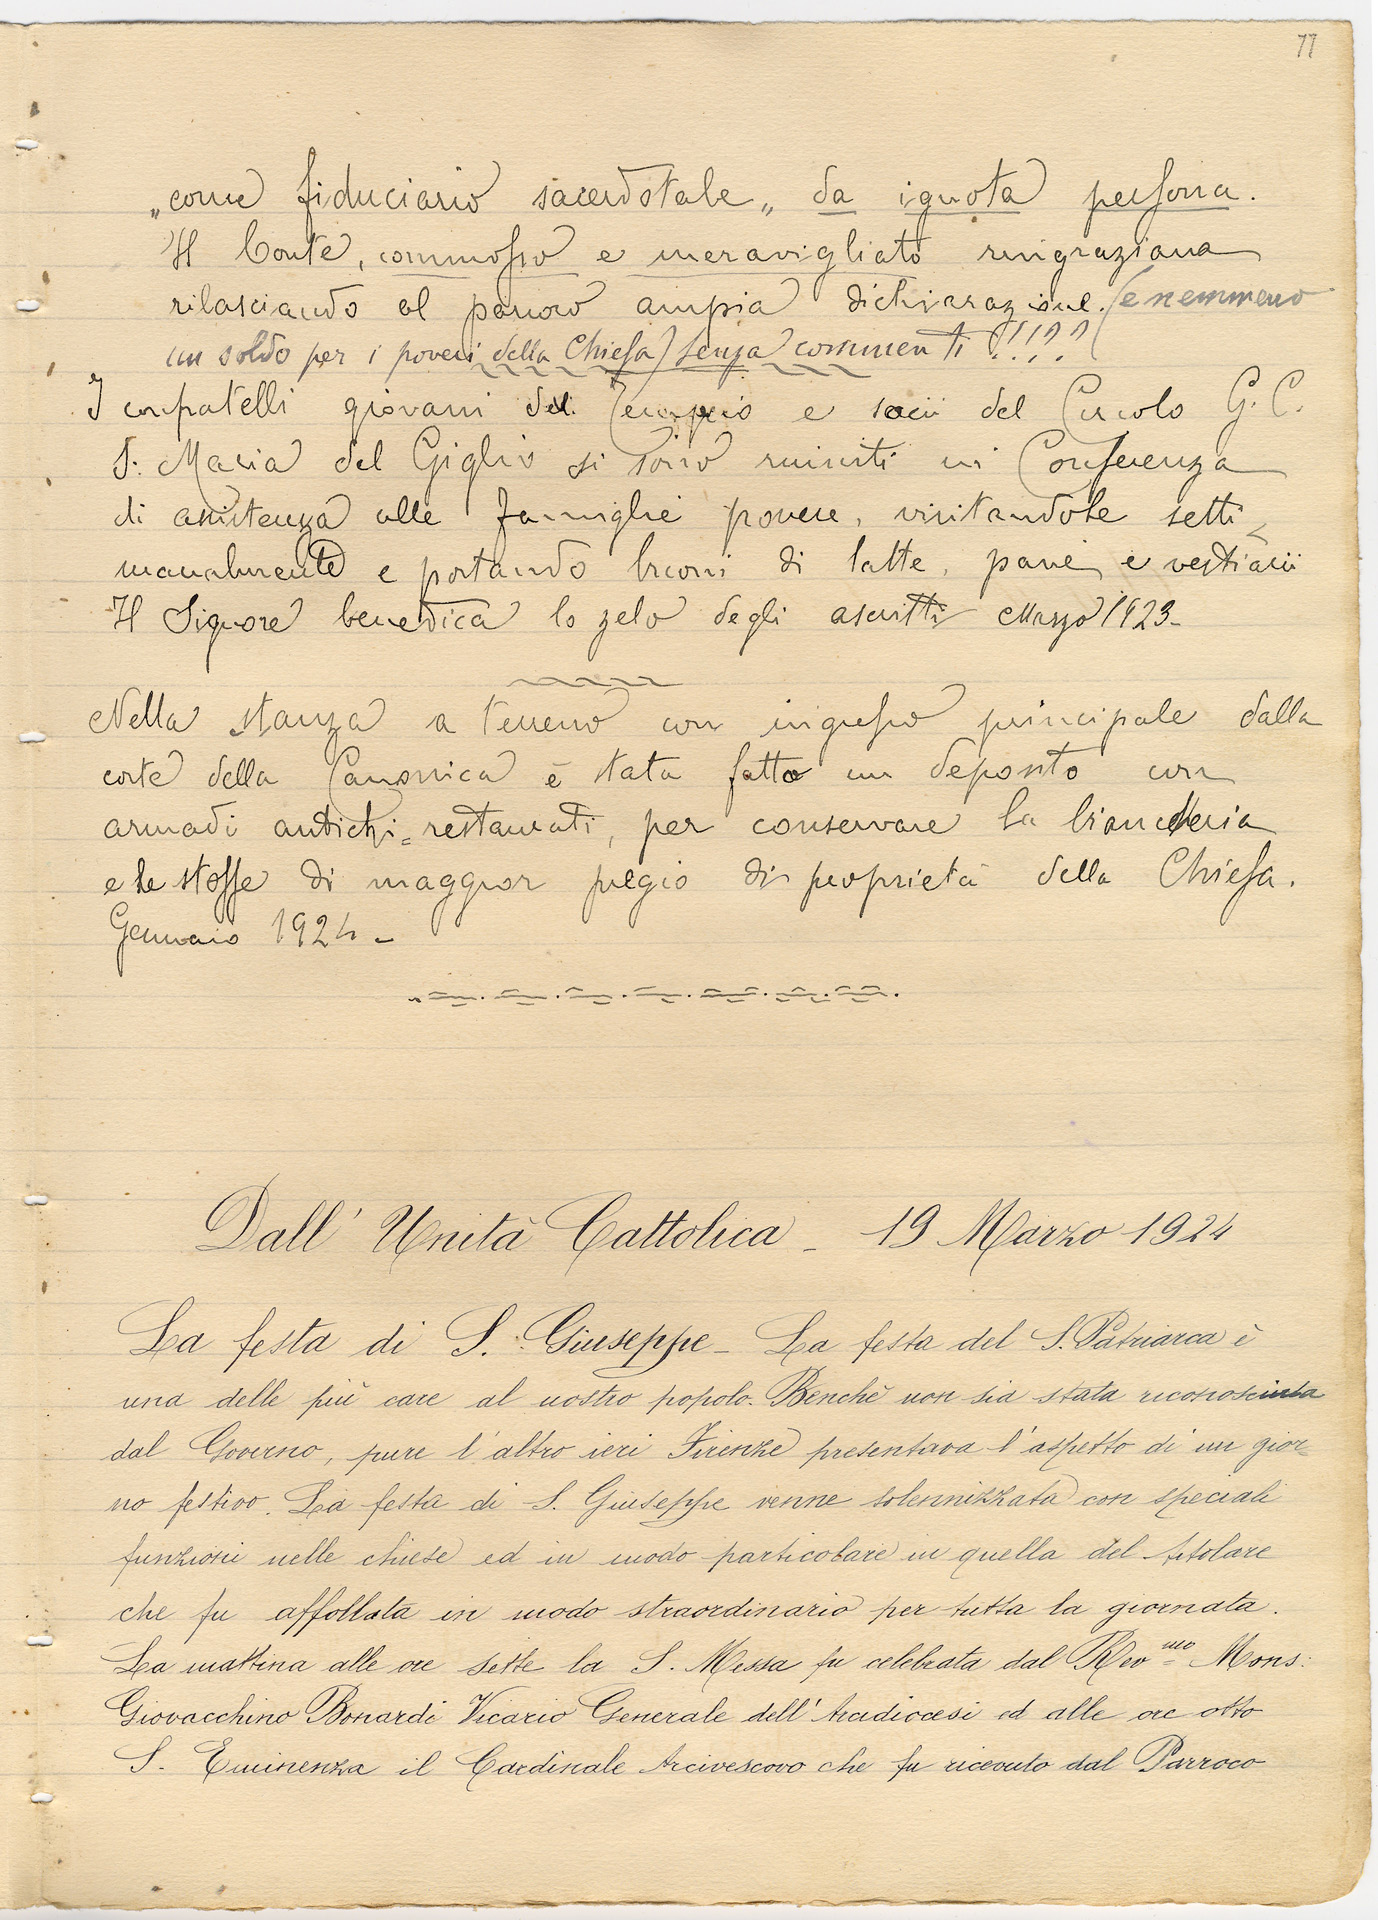 77
„come fiduciario sacerdotale„ da ignota persona.
Il Conte, commosso e meravigliato ringraziava
rilasciando al parroco ampia dichiarazione. (e nemmeno
un soldo per i poveri della Chiesa) senza commenti!!!??
I confratelli giovani del Tempio e socii del Circolo G. C.
S. Maria del Giglio si sono riuniti in Conferenza
di assistenza alle famiglie povere, visitandole setti-
manalmente e portando buoni di latte, pane, e vestiarii
Il Signore benedica lo zelo degli ascritti Marzo 1923-
Nella stanza a terreno con ingresso principale dalla
corte della Canonica è stata fatto un deposito con
armadi antichi-restaurati, per conservare la biancheria
e le stoffe di maggior pregio di proprietà della Chiesa.
Gennaio 1924-
Dall' Unità Cattolica - 19 Marzo 1924
La festa di S. Giuseppe - La festa del S. Patriarca è
una delle più care al nostro popolo. Benchè non sia stata riconosciuta
dal Governo, pure l'altro ieri Firenze presentava l'aspetto di un gior-
no festivo. La festa di S. Giuseppe venne solennizzata con speciali
funzioni nelle chiese ed in modo particolare in quella del titolare
che fu affollata in modo straordinario per tutta la giornata.
La mattina alle ore sette la S. Messa fu celebrata dal Rev.mo Mons:
Giovacchino Bonardi Vicario Generale dell'Arcidiocesi ed alle ore otto
S. Eminenza il Cardinale Arcivescovo che fu ricevuto dal Parroco